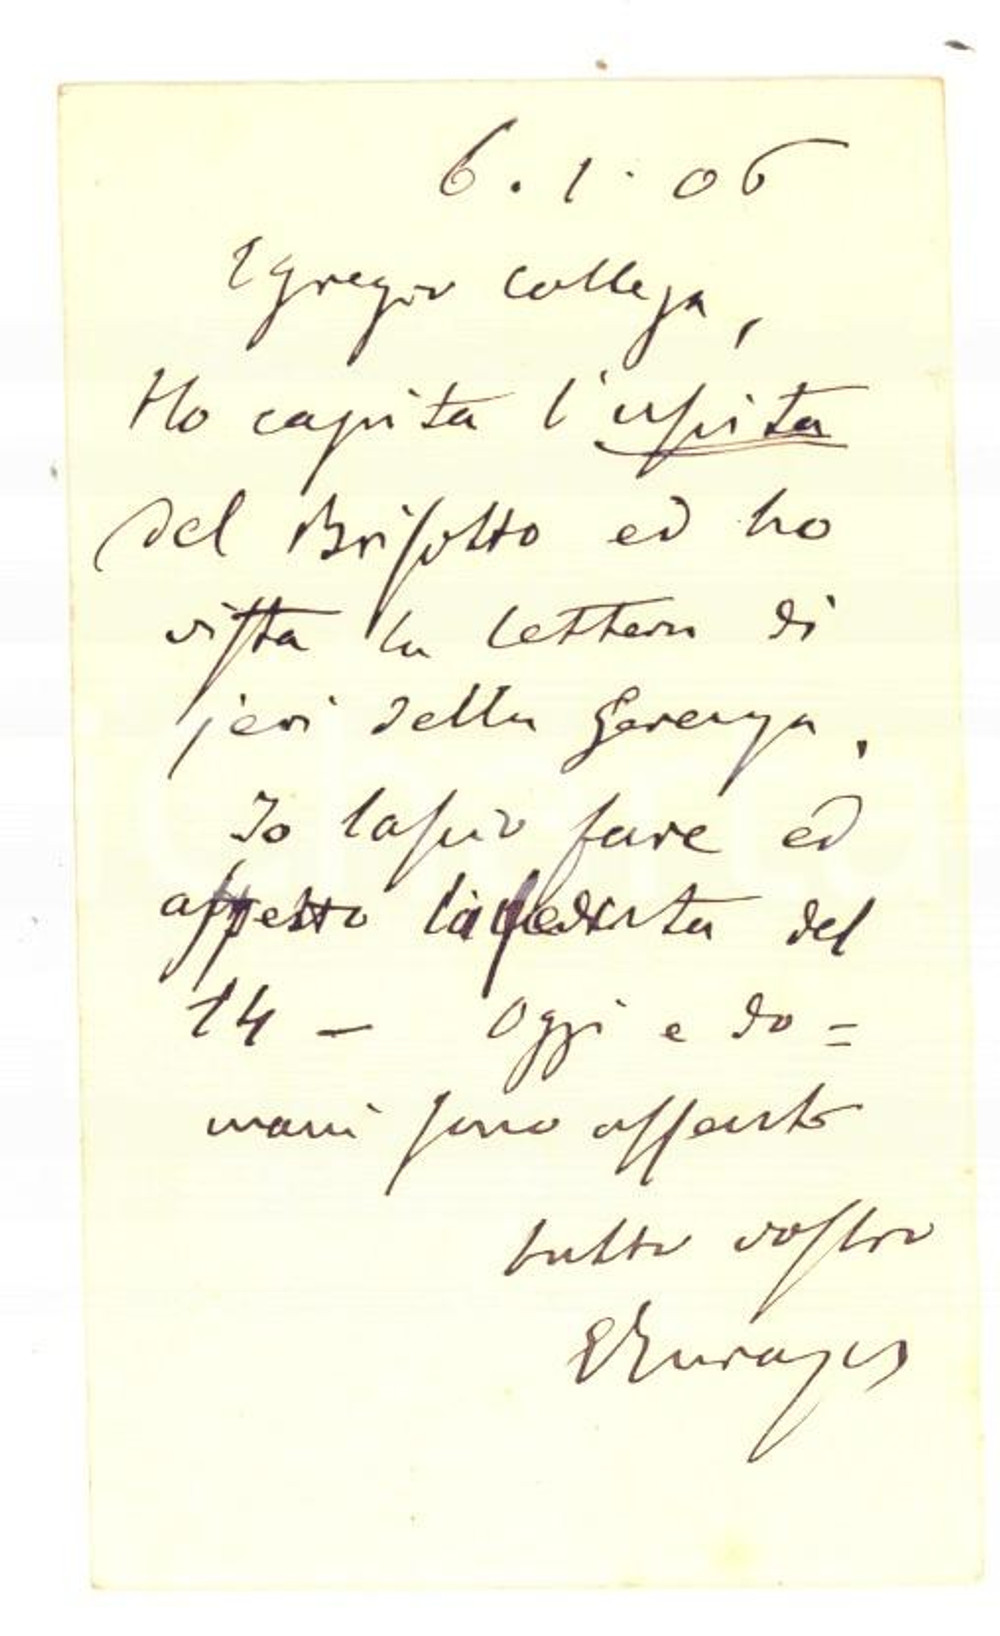 6.1.06
Egregio collega,
Ho capita l'uscita
del Brisotto ed ho
vista la lettera di
jeri della Gerenza.
Io lascio fare ed
aspetto la seduta del
14 — Oggi e do=
mani sono assente
tutto vostro